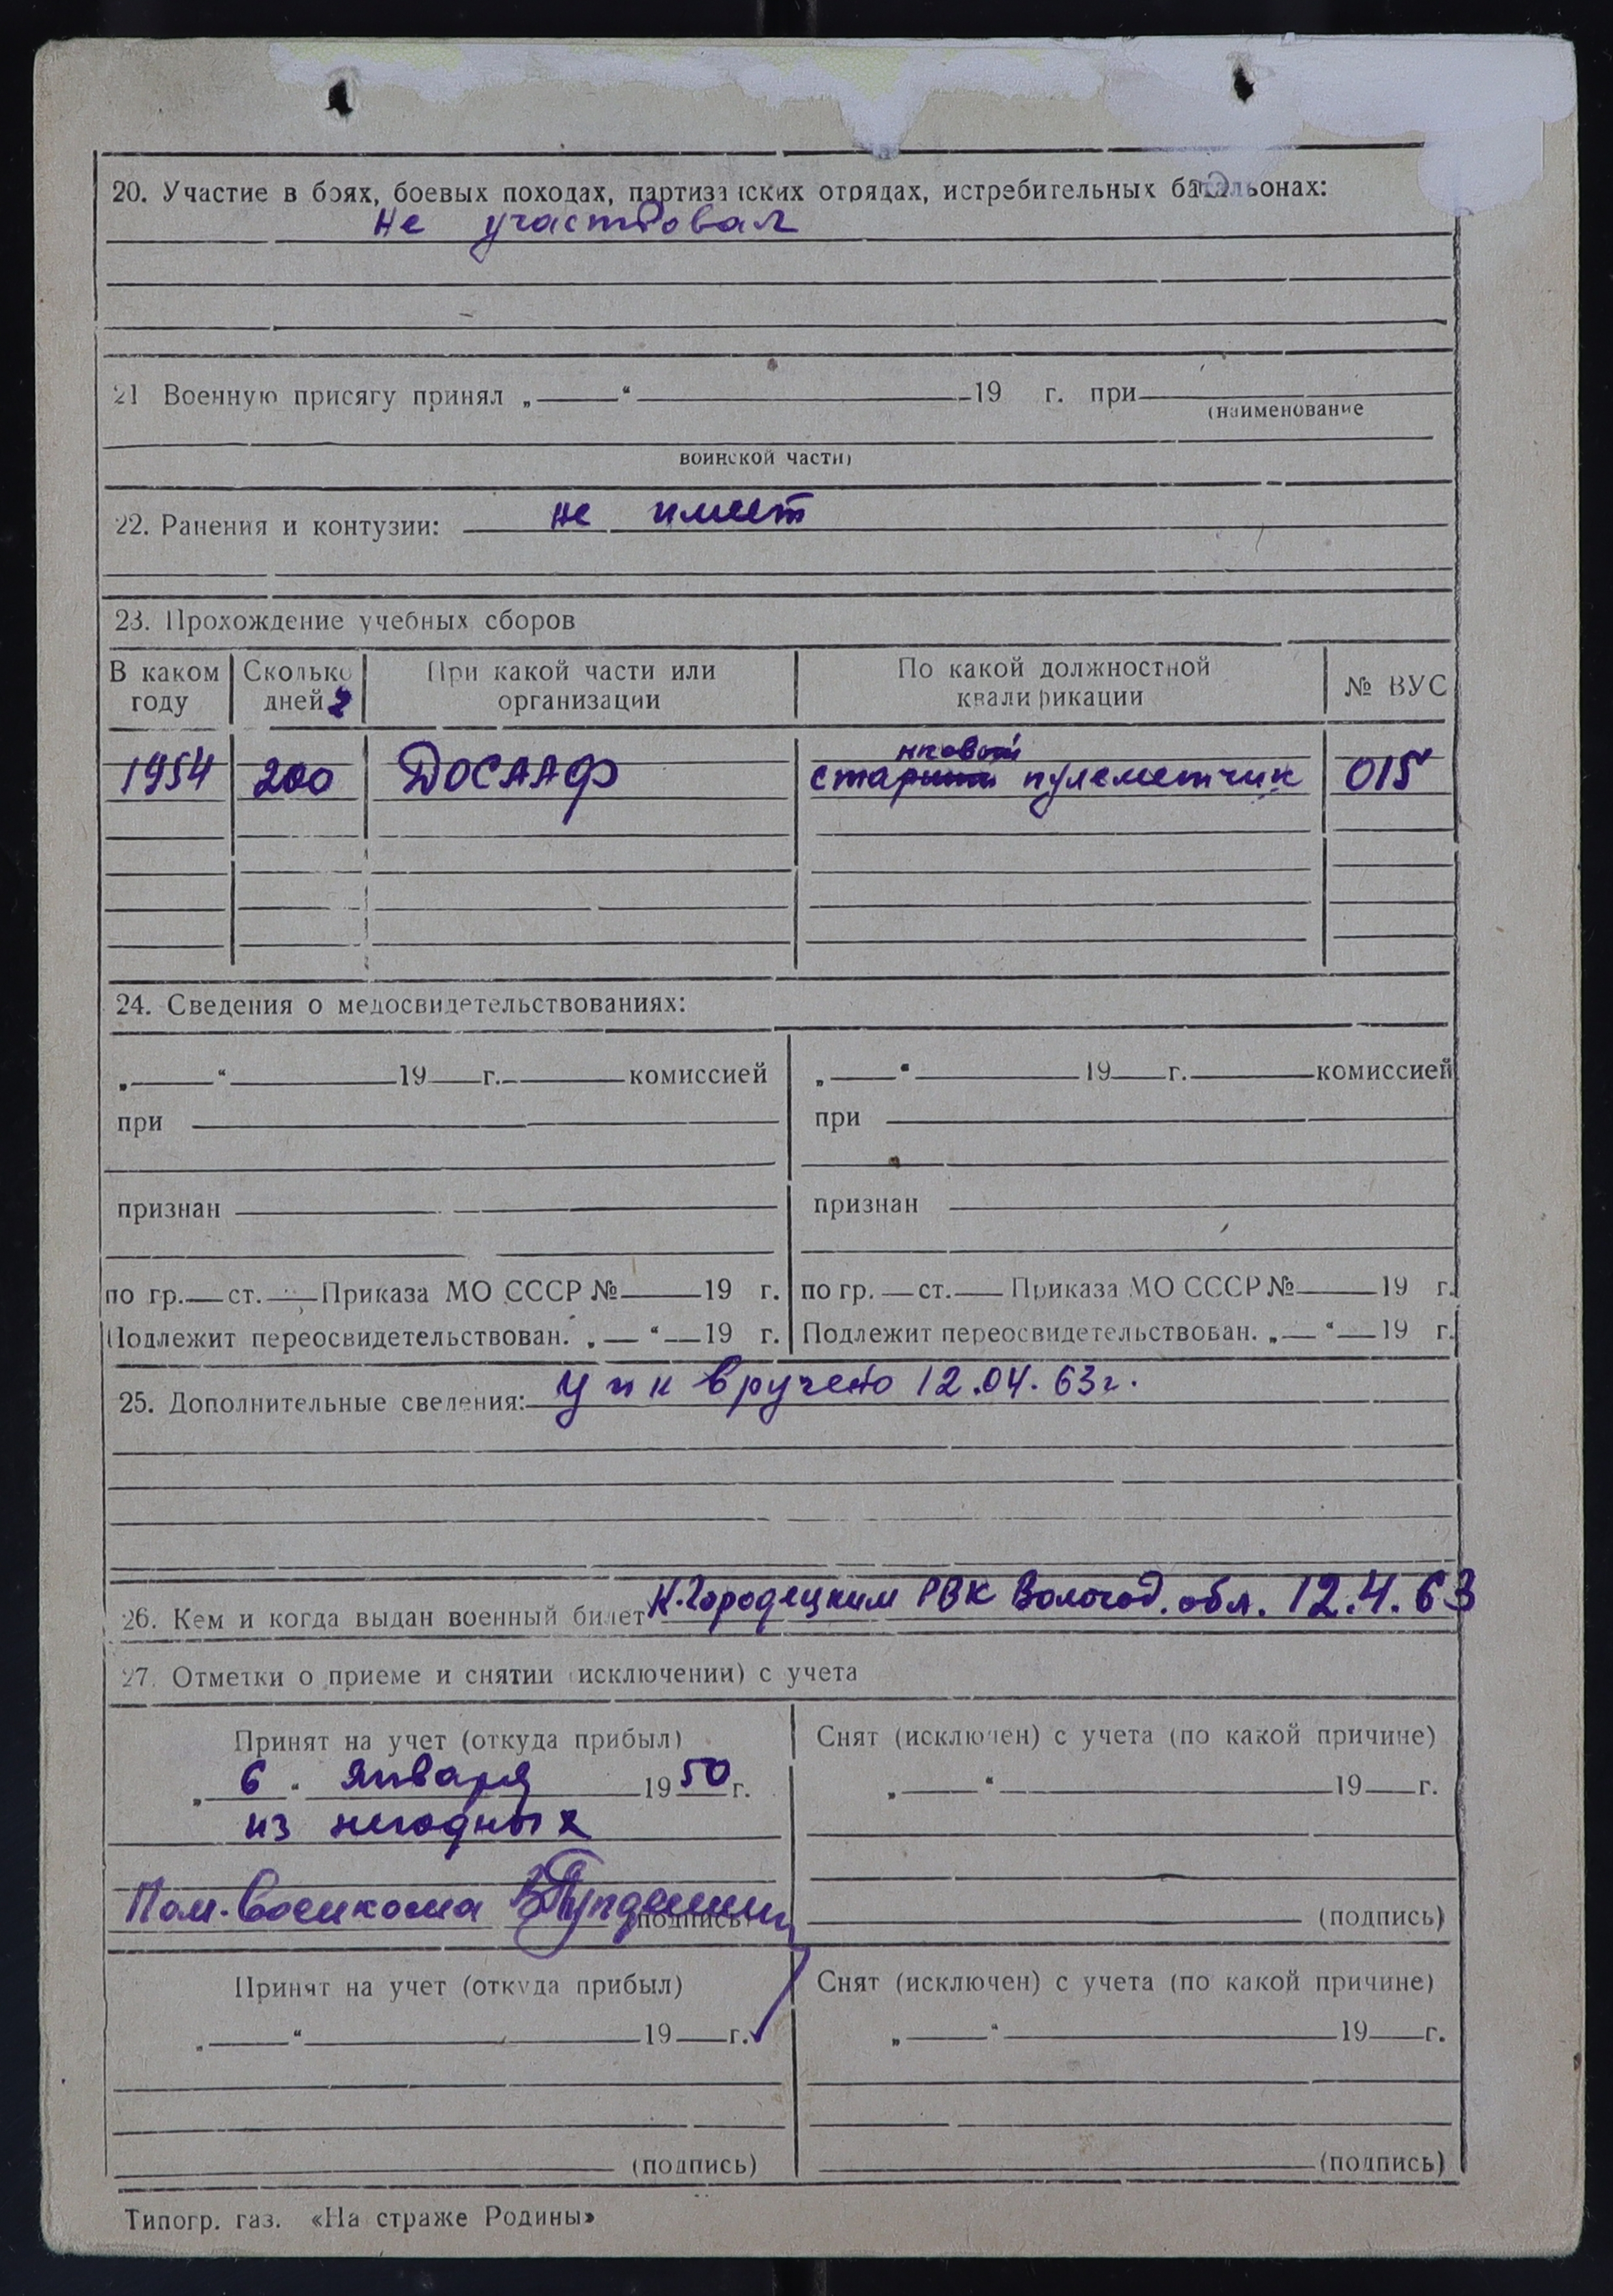 20. Участие в боях, боевых походах, партизанских отрядах, истребительных батальонах:
не участвовал
21 Военную присягу принял „ “ 19 г. при
(наименование
воинской части)
22. Ранения и контузии: не имеет
23. Прохождение учебных сборов
В каком году Сколько дней При какой части или организации По какой должностной квалификации № ВУС
нковой
1954 200 ДОСААФ пулеметчик 015
24. Сведения о медосвидетельствованиях:
„ “ 19 г. комиссией „ “ 19 г. комиссией
при при
признан признан
по гр. ст. Приказа МО СССР № 19 г. по гр. ст. Приказа МО СССР № 19 г.
Подлежит переосвидетельствован. „ “ 19 г. Подлежит переосвидетельствован. „ “ 19 г.
25. Дополнительные сведения: вручено 12.04.63г.
26. Кем и когда выдан военный билет К.Городецким РВК Вологод. обл. 12.4.63
27. Отметки о приеме и снятии (исключении) с учета
Принят на учет (откуда прибыл) Снят (исключен) с учета (по какой причине)
„ 6 “ января 1950 г. „ “ 19 г.
из негодных
Пом. Военкома (подпись) (подпись)
Принят на учет (откуда прибыл) Снят (исключен) с учета (по какой причине)
„ “ 19 г. „ “ 19 г.
(подпись) (подпись)
Типогр. газ. «На страже Родины»